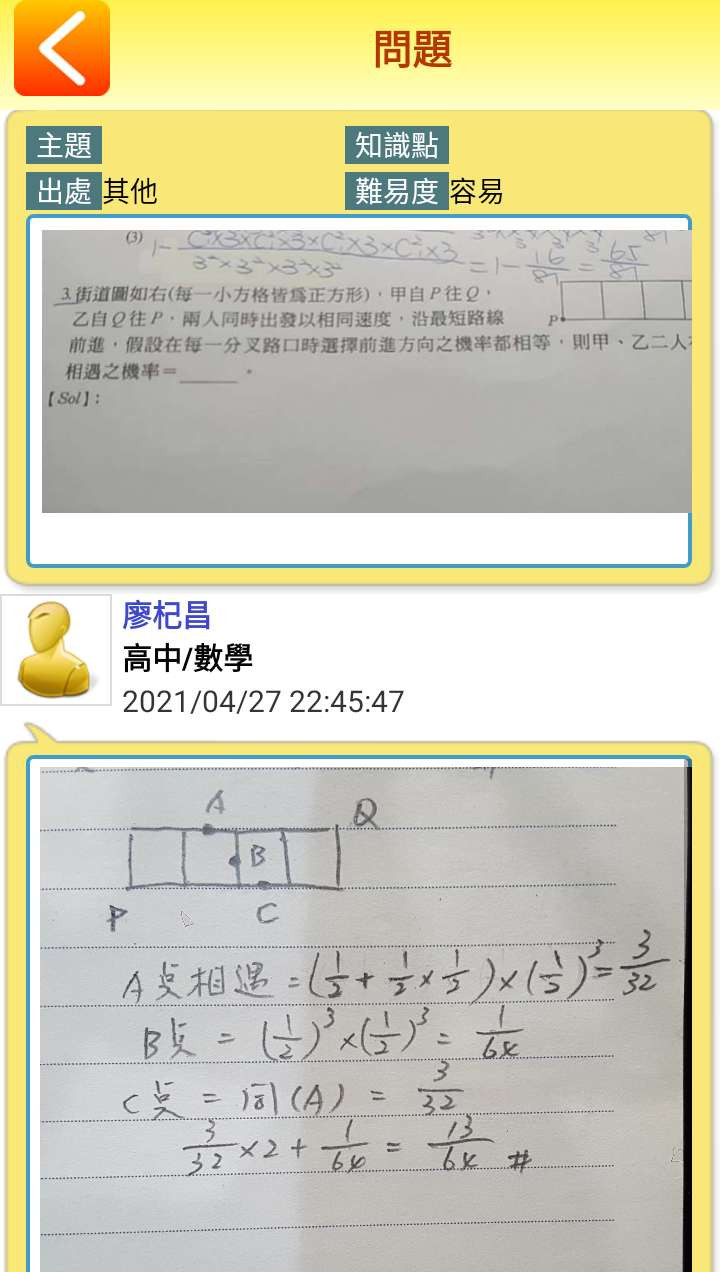 問題
主題 知識點
出處 其他 難易度 容易
(3) 1-
= 1 - 16/81 = 65/81
3.街道圖如右(每一小方格皆爲正方形)，甲自P往Q，
乙自Q往P，兩人同時出發以相同速度，沿最短路線
P
前進，假設在每一分叉路口時選擇前進方向之機率都相等，則甲、乙二人
相遇之機率=______。
【Sol】：
廖杞昌
高中/數學
2021/04/27 22:45:47
A Q
B
P C
A 点相遇 = (1/2 + 1/2 × 1/2) × (1/2)^3 = 3/32
B点 = (1/2)^3 × (1/2)^3 = 1/64
C 点 = 同(A) = 3/32
3/32 × 2 + 1/64 = 13/64 #